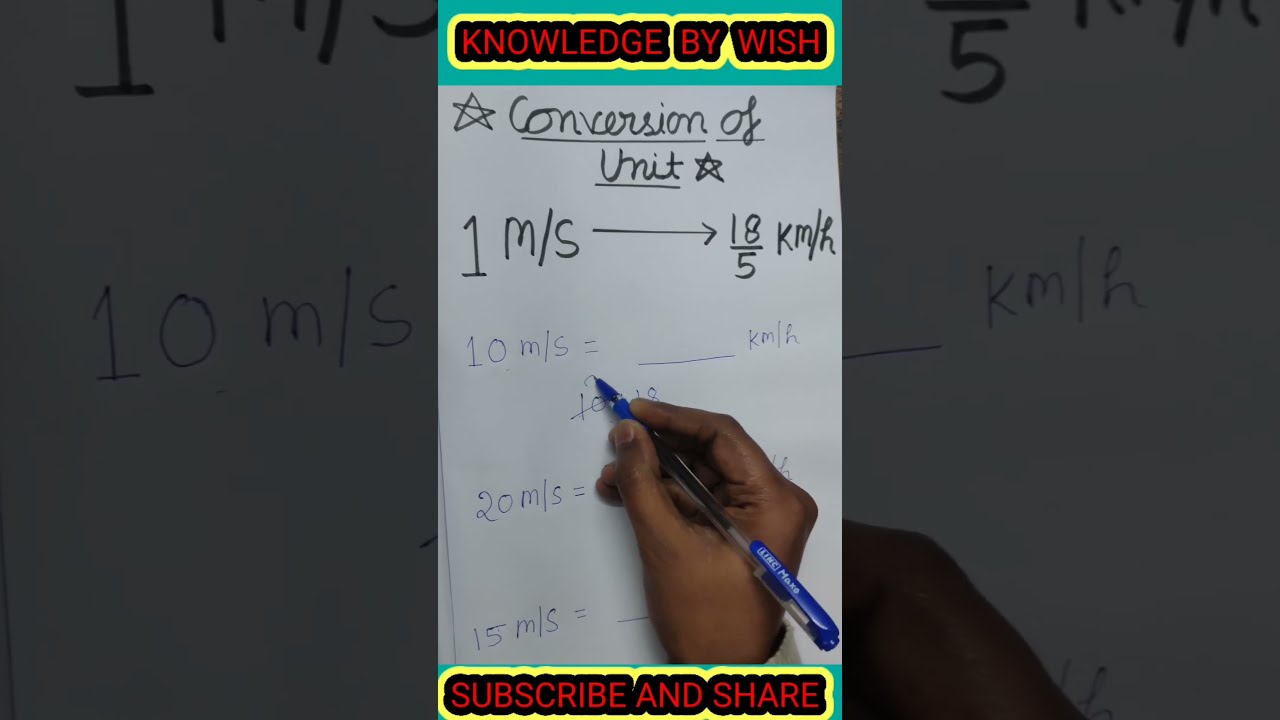 KNOWLEDGE BY WISH
Conversion of
Unit
1 m/s → 18/5 km/h
10 m/s = ____ km/h
18
20 m/s =
15 m/s = __
LINC Maxo
SUBSCRIBE AND SHARE